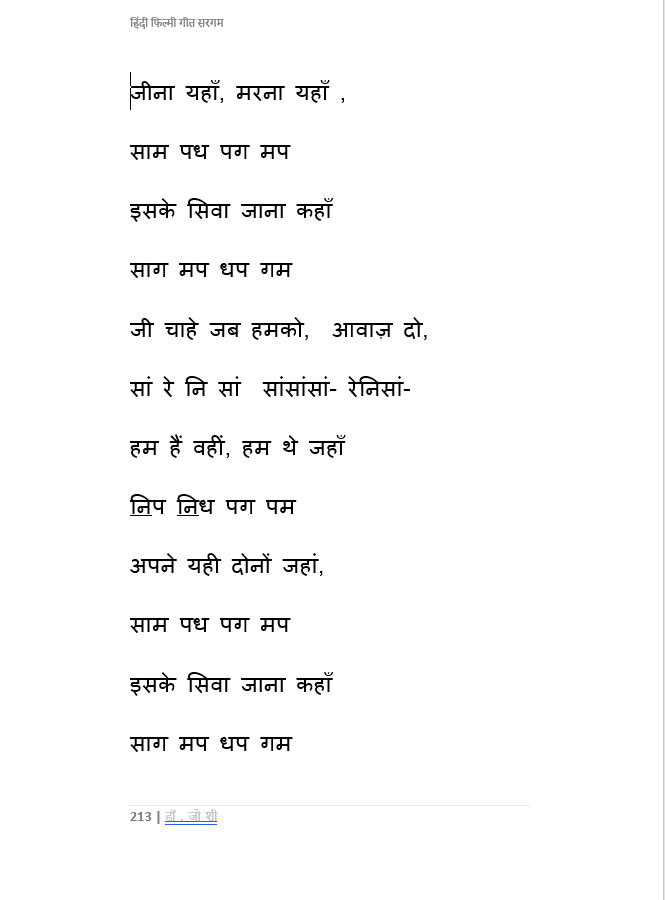 हिंदी फिल्मी गीत सरगम
जीना यहाँ, मरना यहाँ ,
साम पध पग मप
इसके सिवा जाना कहाँ
साग मप धप गम
जी चाहे जब हमको, आवाज़ दो,
सां रे नि सां सांसांसां- रेनिसां-
हम हैं वहीं, हम थे जहाँ
निप निध पग पम
अपने यही दोनों जहां,
साम पध पग मप
इसके सिवा जाना कहाँ
साग मप धप गम
213 | डॉ . जो शी